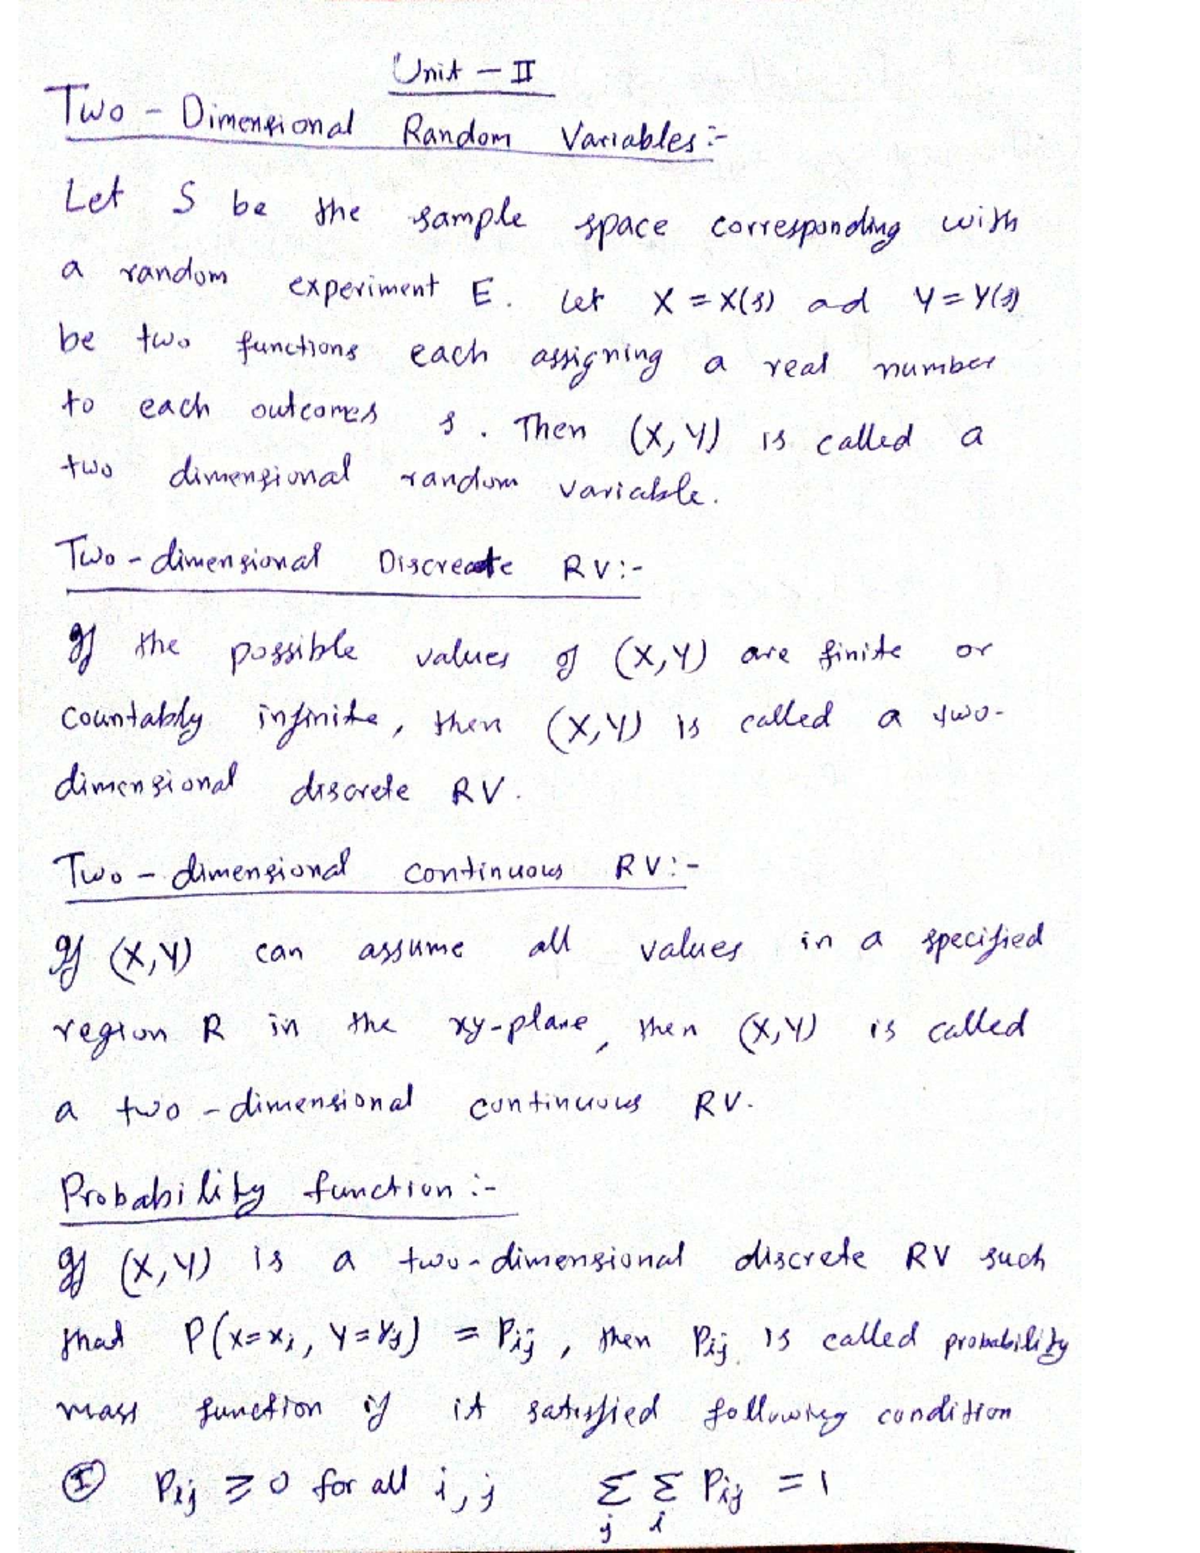 Unit - II
Two - Dimensional Random Variables :-
Let S be the sample space corresponding with
a random experiment E. Let X = X(s) ad Y = Y(s)
be two functions each assigning a real number
to each outcomes s. Then (X, Y) is called a
two dimensional random variable.
Two - dimensional Discreate RV :-
If the possible values of (X,Y) are finite or
countably infinite, then (X,Y) is called a two-
dimensional discrete RV.
Two - dimensional continuous RV :-
If (X,Y) can assume all values in a specified
region R in the xy-plane, then (X,Y) is called
a two - dimensional continuous RV.
Probability function :-
If (X,Y) is a two - dimensional discrete RV such
that P(X=xᵢ, Y=Yⱼ) = Pᵢⱼ, then Pᵢⱼ is called probability
mass function if it satisfied following condition
Ⓘ Pᵢⱼ ⩾ 0 for all i, j Σⱼ Σᵢ Pᵢⱼ = 1